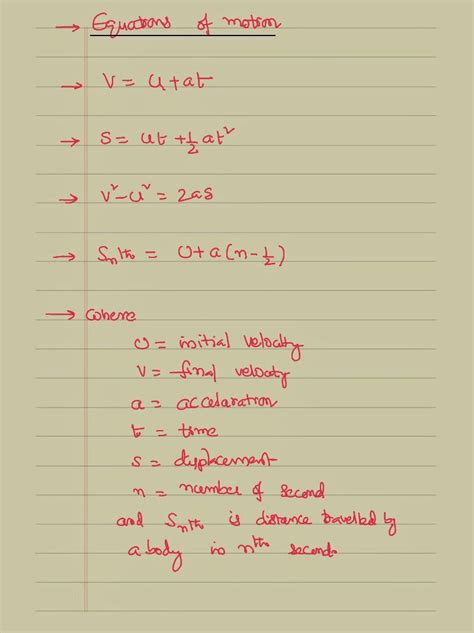 → Equations of motion
→ V = u + at
→ S = ut + ½ at²
→ V² - u² = 2as
→ Snth = U + a (n - ½)
→ where
U = initial velocity
V = final velocity
a = accelaration
t = time
s = displacement
n = number of second
and Snth is distance travelled by
a body in nth second.